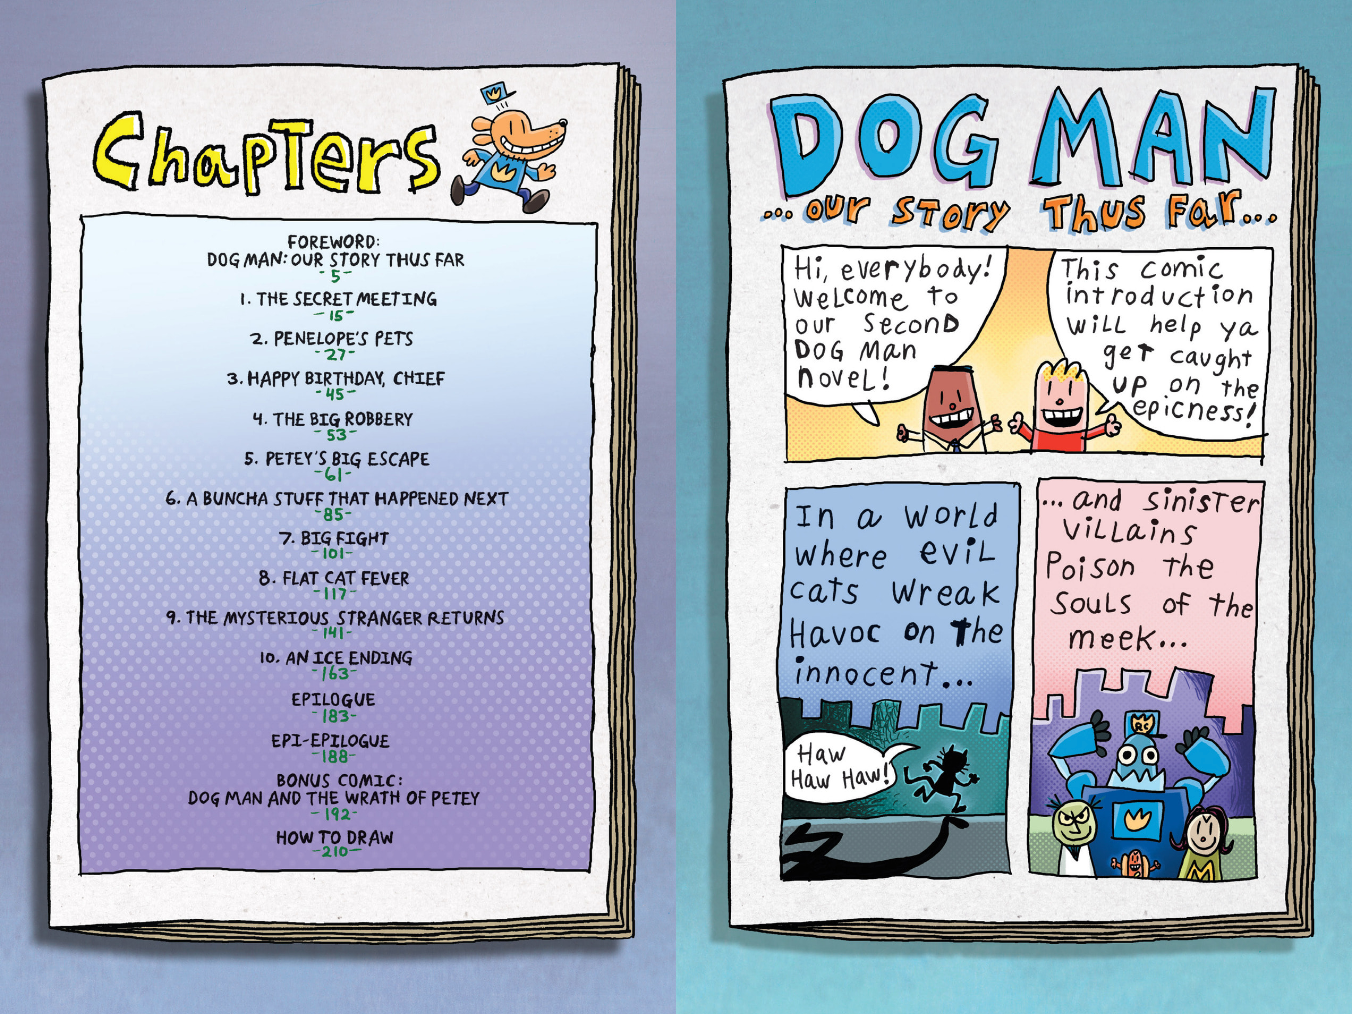 Chapters
FOREWORD:
DOG MAN: OUR STORY THUS FAR
-5-
1. THE SECRET MEETING
-15-
2. PENELOPE'S PETS
-27-
3. HAPPY BIRTHDAY, CHIEF
-45-
4. THE BIG ROBBERY
-53-
5. PETEY'S BIG ESCAPE
-61-
6. A BUNCHA STUFF THAT HAPPENED NEXT
-85-
7. BIG FIGHT
-101-
8. FLAT CAT FEVER
-117-
9. THE MYSTERIOUS STRANGER RETURNS
-141-
10. AN ICE ENDING
-163-
EPILOGUE
-183-
EPI-EPILOGUE
-188-
BONUS COMIC:
DOG MAN AND THE WRATH OF PETEY
-192-
HOW TO DRAW
-210-
DOG MAN
...our Story Thus Far...
Hi, everybody!
Welcome to
our Second
DOG Man
novel!
This comic
introduction
will help ya
get caught
up on the
epicness!
In a world
where evil
cats wreak
Havoc on the
innocent...
Haw
Haw Haw!
...and sinister
villains
Poison the
Souls of the
meek...
RC
M